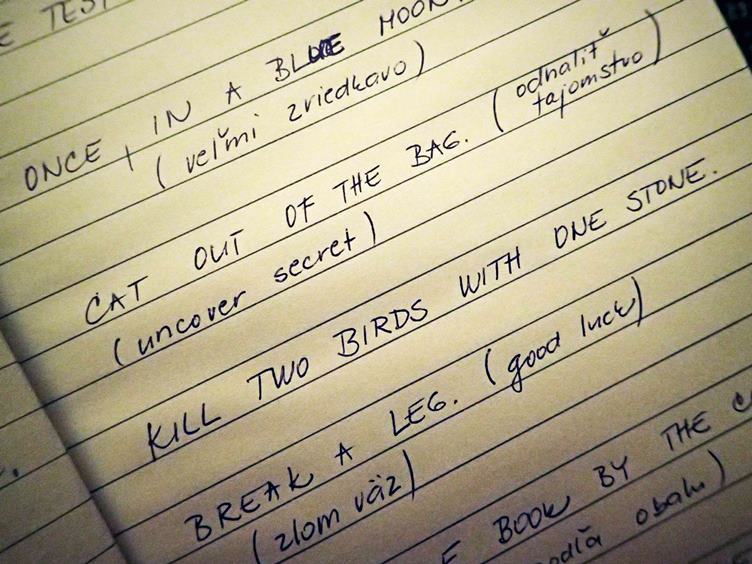 E TEST
ONCE, IN A BLUE MOON.
(veľmi zriedkavo)
CAT OUT OF THE BAG. (odhaliť
tajomstvo)
(uncover secret)
KILL TWO BIRDS WITH ONE STONE.
BREAK A LEG. (good luck)
(zlom väz)
BOOK BY THE
podľa obalu)